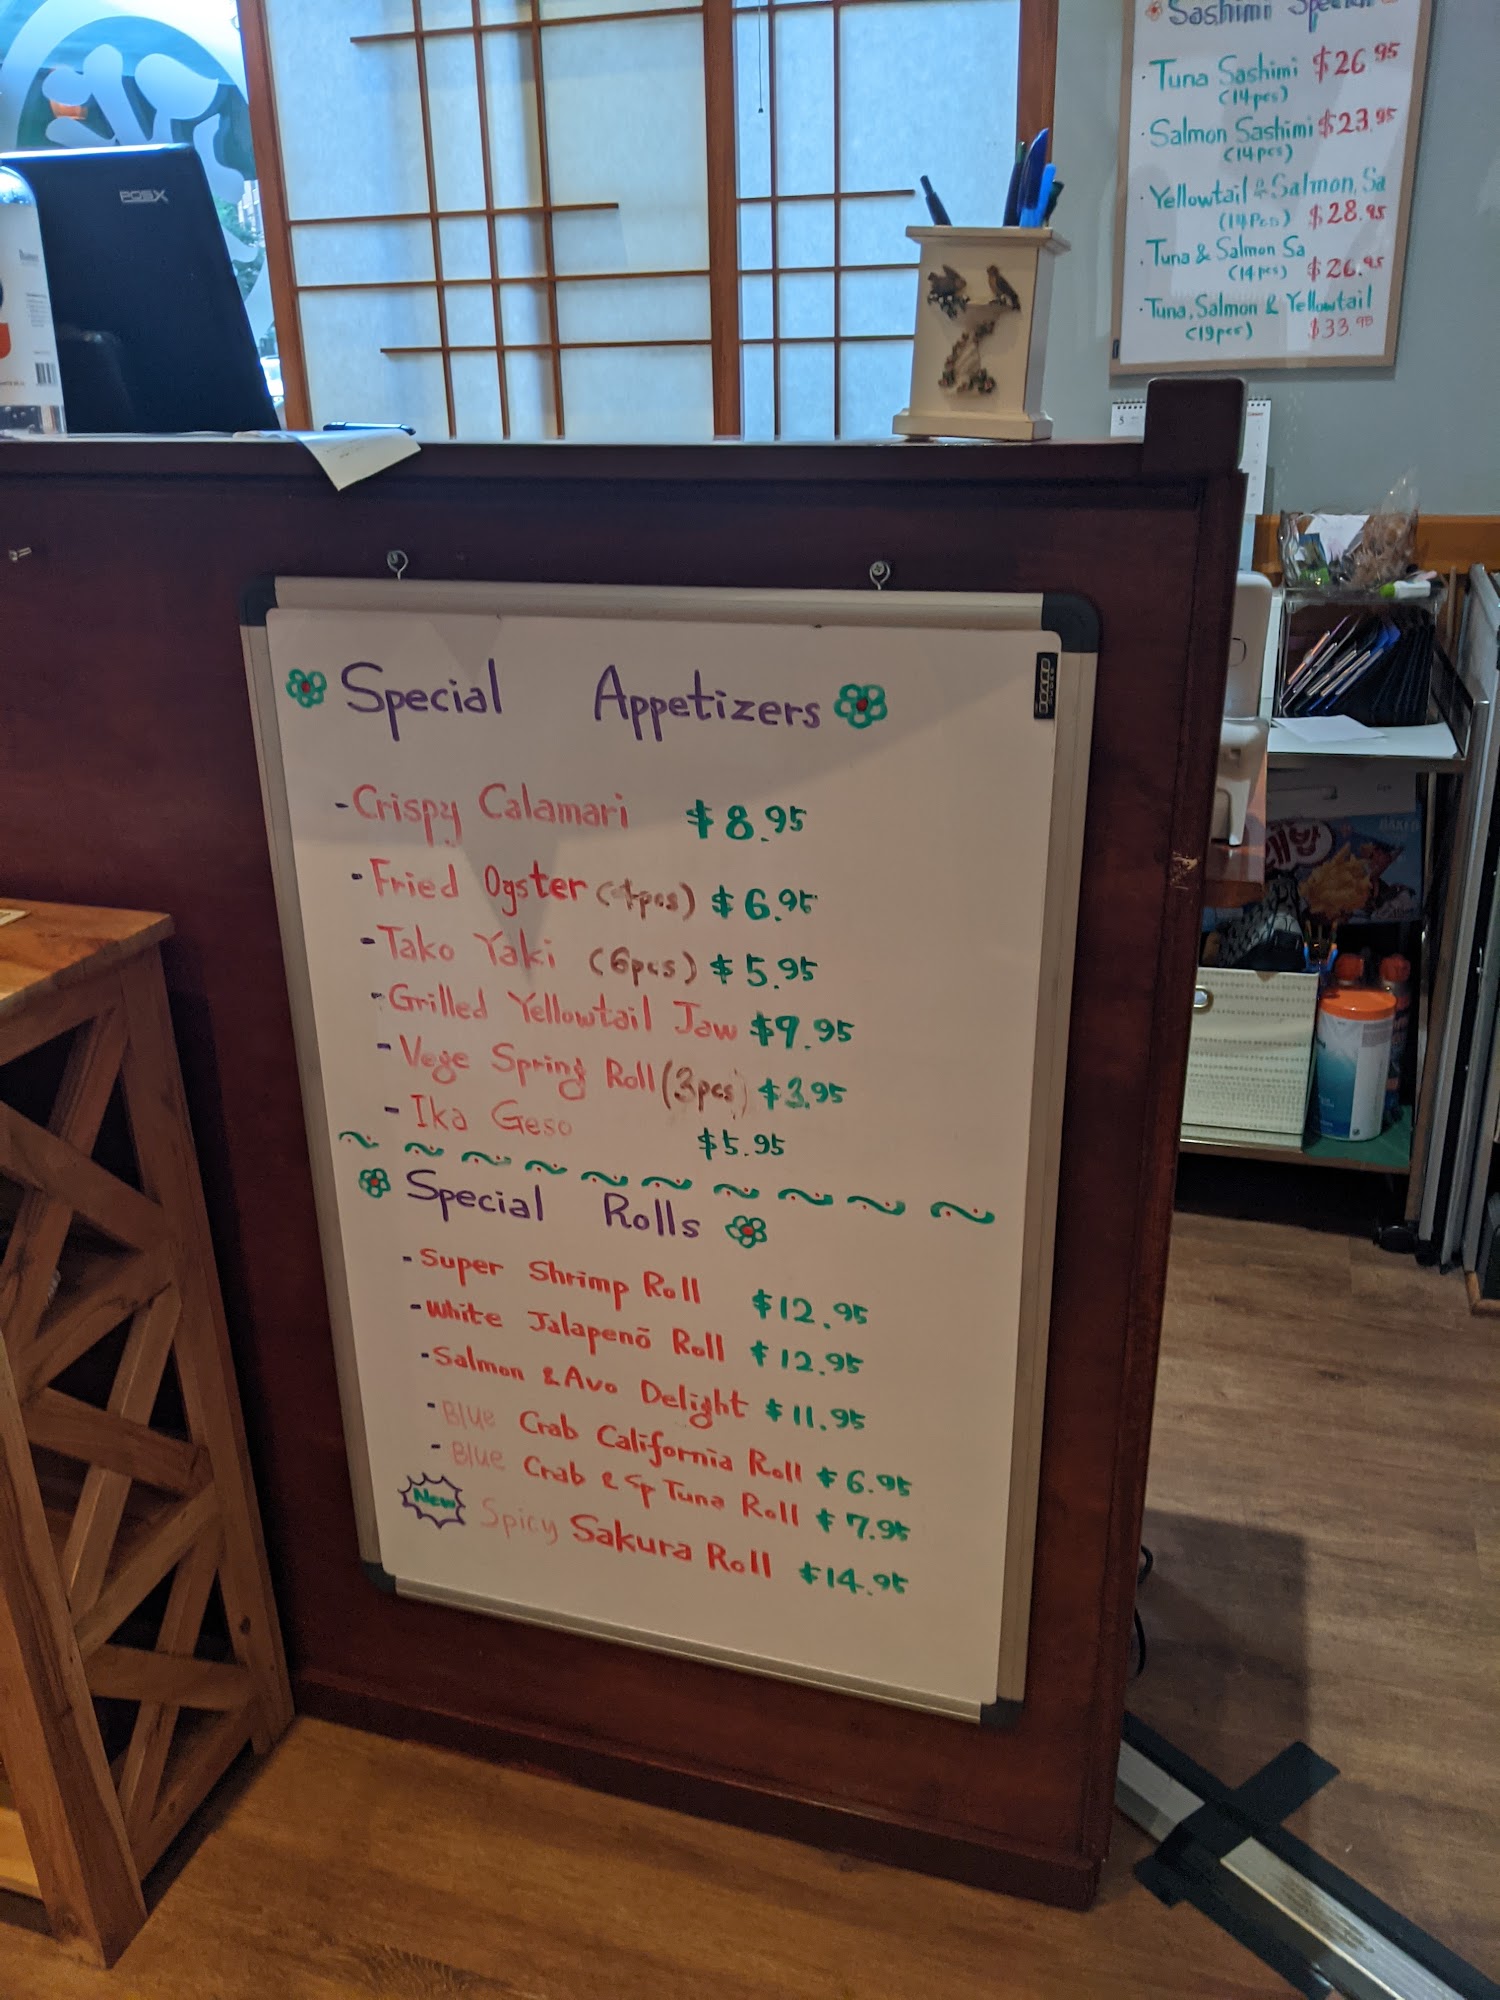 POSX
Sashimi Special
· Tuna Sashimi $26.95
(14pcs)
· Salmon Sashimi $23.95
(14pcs)
· Yellowtail & Salmon, Sa
(14Pcs) $28.95
· Tuna & Salmon Sa
(14pcs) $26.95
· Tuna, Salmon & Yellowtail
(19pcs) $33.95
Special Appetizers
- Crispy Calamari $8.95
- Fried Oyster (4pcs) $6.95
- Tako Yaki (6pcs) $5.95
- Grilled Yellowtail Jaw $9.95
- Vege Spring Roll (3pcs) $3.95
- Ika Geso $5.95
Special Rolls
- Super Shrimp Roll $12.95
- White Jalapenō Roll $12.95
- Salmon & Avo Delight $11.95
- Blue Crab California Roll $6.95
- Blue Crab & Sp Tuna Roll $7.95
New Spicy Sakura Roll $14.95